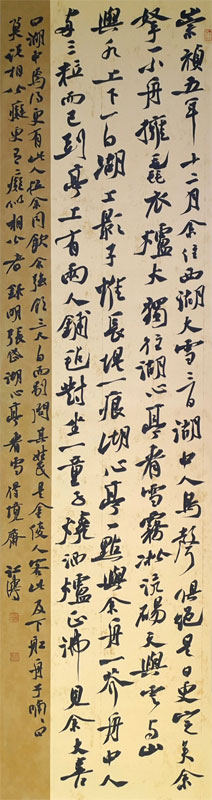 崇禎五年十二月余住西湖大雪三日湖中人鳥聲俱絕是日更定矣余
拏一小舟擁毳衣爐火獨往湖心亭看雪霧凇沆碭天與雲與山
與水上下一白湖上影子惟長堤一痕湖心亭一點與余舟一芥舟中人
兩三粒而已到亭上有兩人鋪氈對坐一童子燒酒爐正沸見余大喜
曰湖中焉得更有此人拉余同飲余強飲三大白而別問其姓氏是金陵人客此及下船舟子喃喃曰
莫說相公癡更有癡似相公者 錄明張岱湖心亭看雪